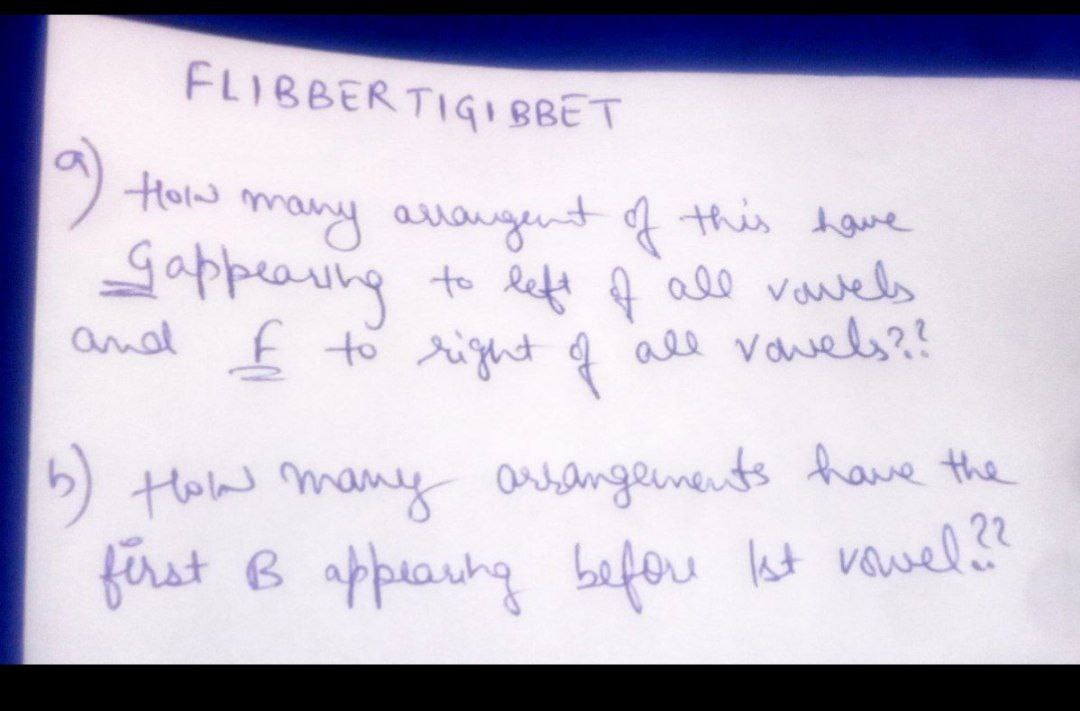 FLIBBERTIGIBBET
a) How many arrangent of this have
G appearing to left of all vowels
and f to right of all vowels??
b) How many arrangements have the
first B appearing before 1st vowel??